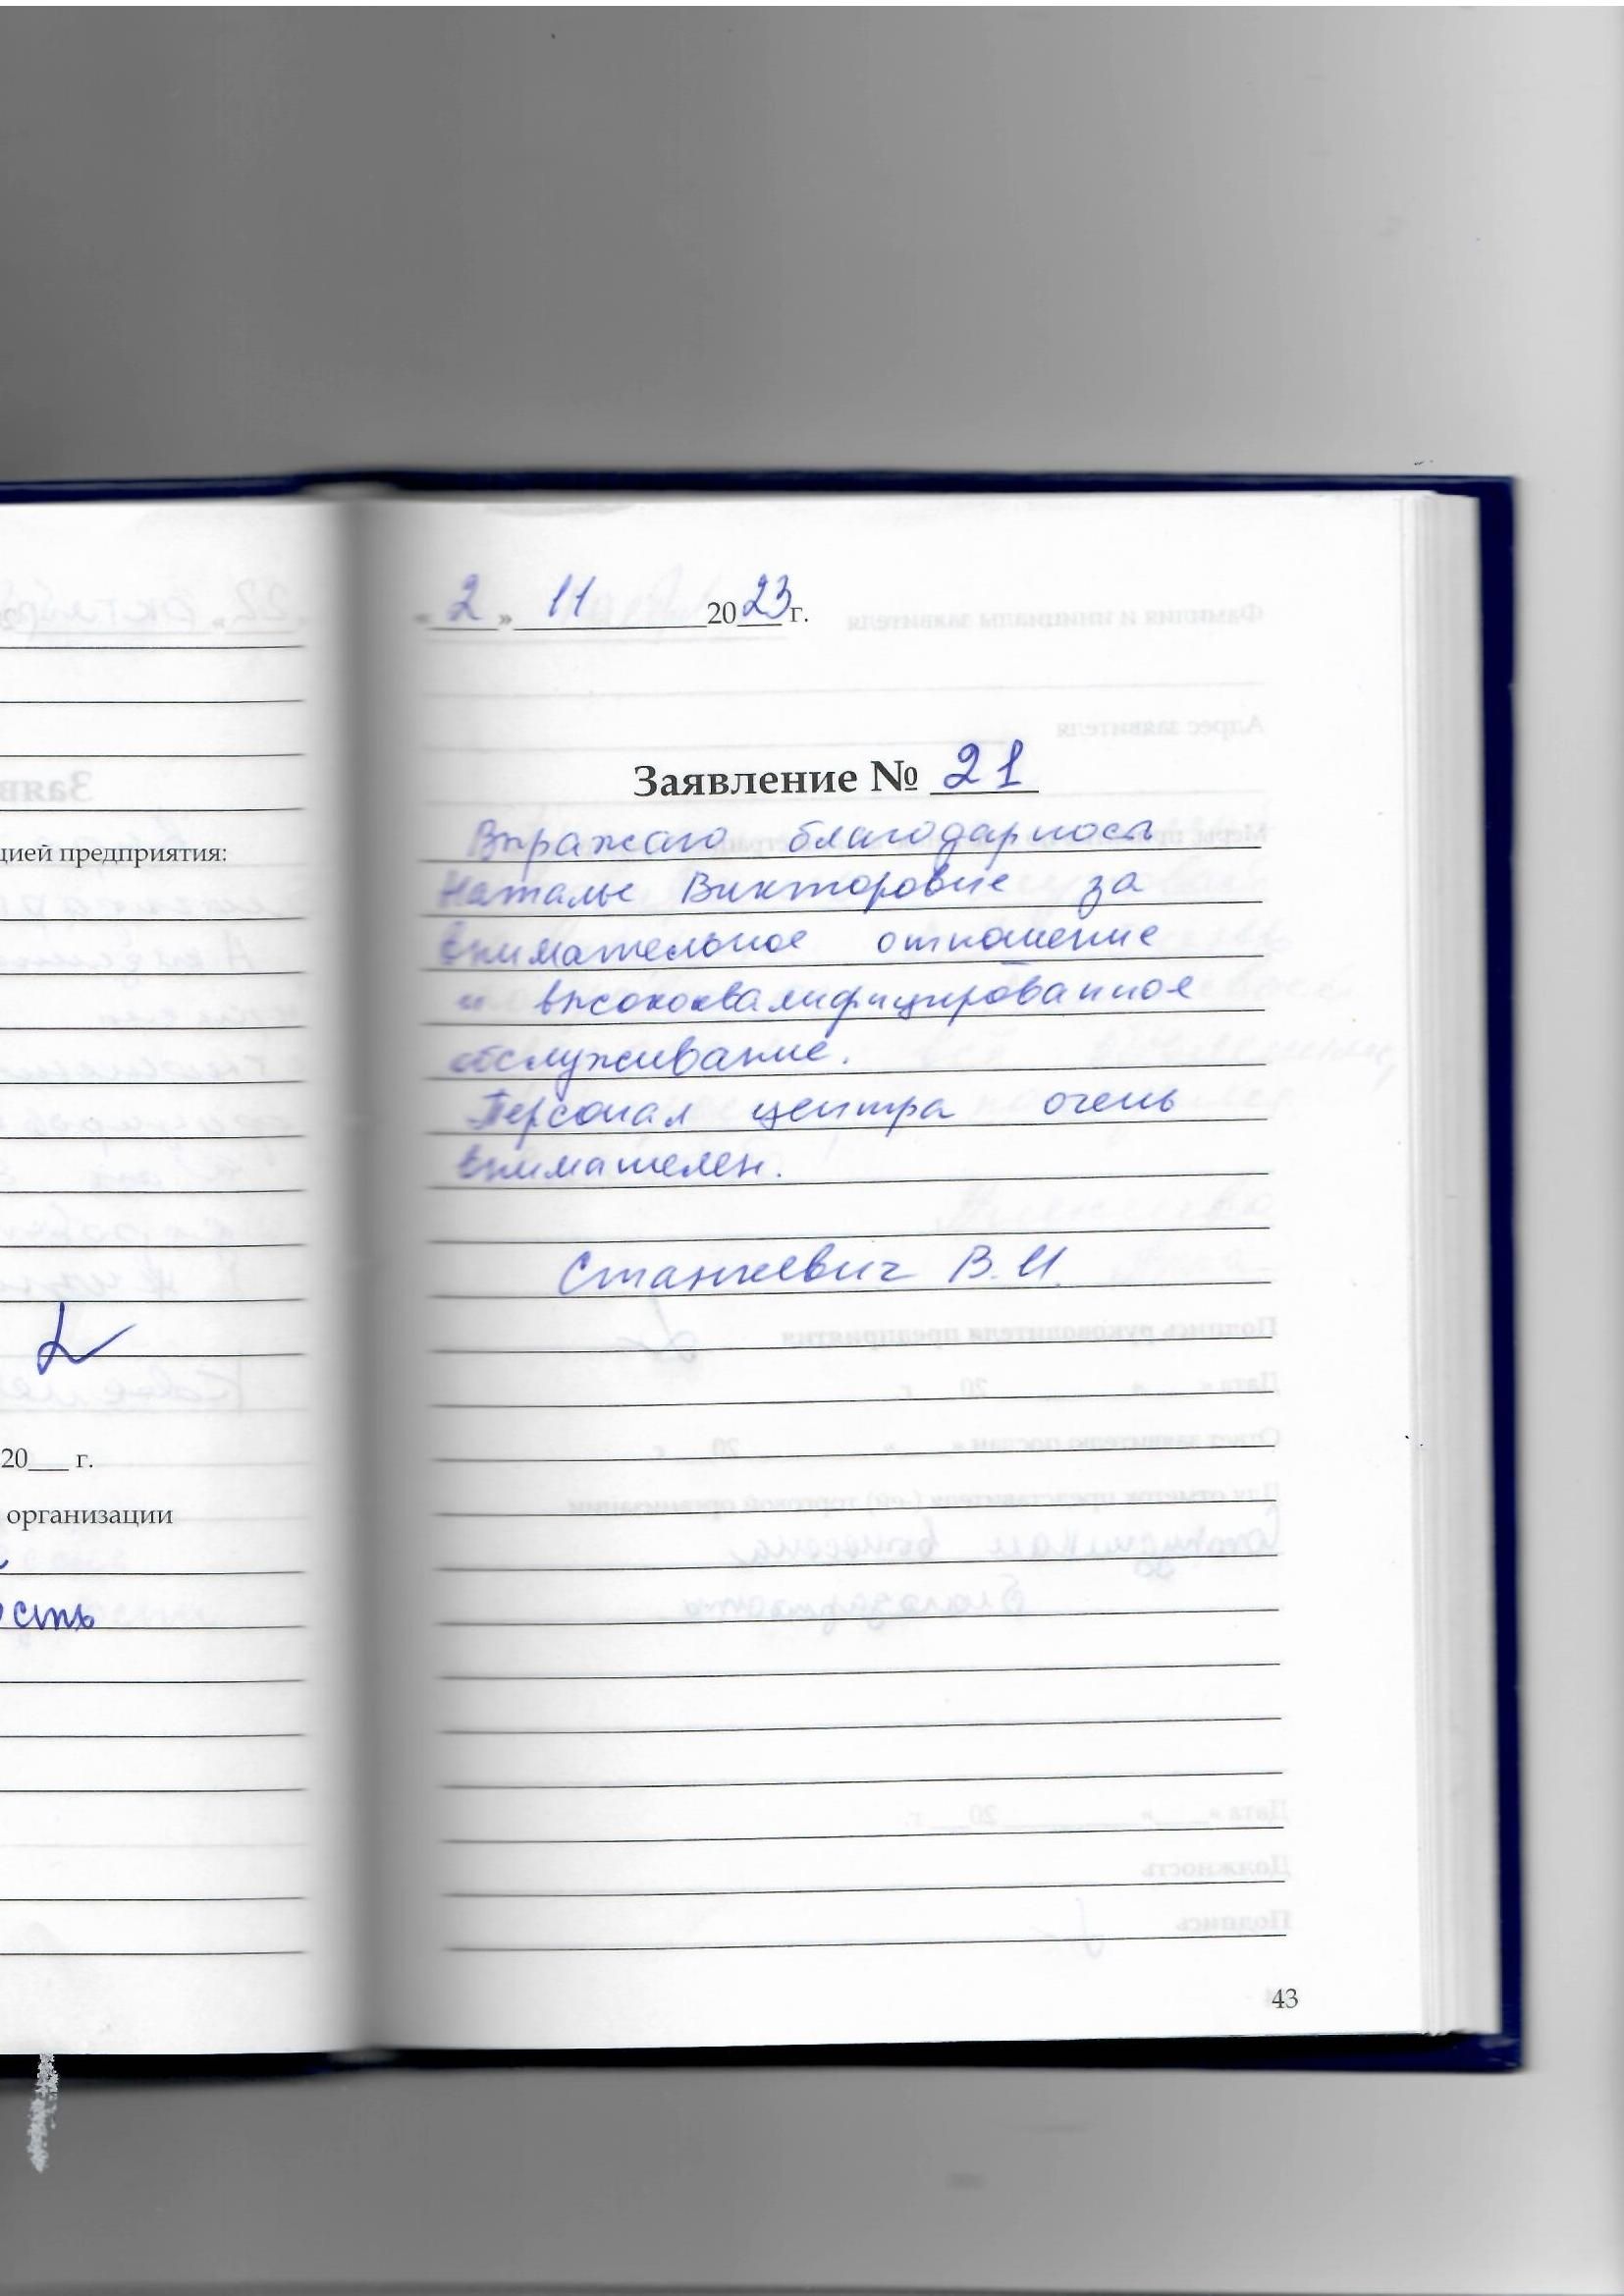 цией предприятия:
20___ г.
организации
ость
« 2 » 11 2023 г.
Заявление № 21
Выражаю благодарность
Наталье Викторовне за
внимательное отношение
и высококвалифицированное
обслуживание.
Персонал центра очень
внимателен.
Станкевич В.И.
43